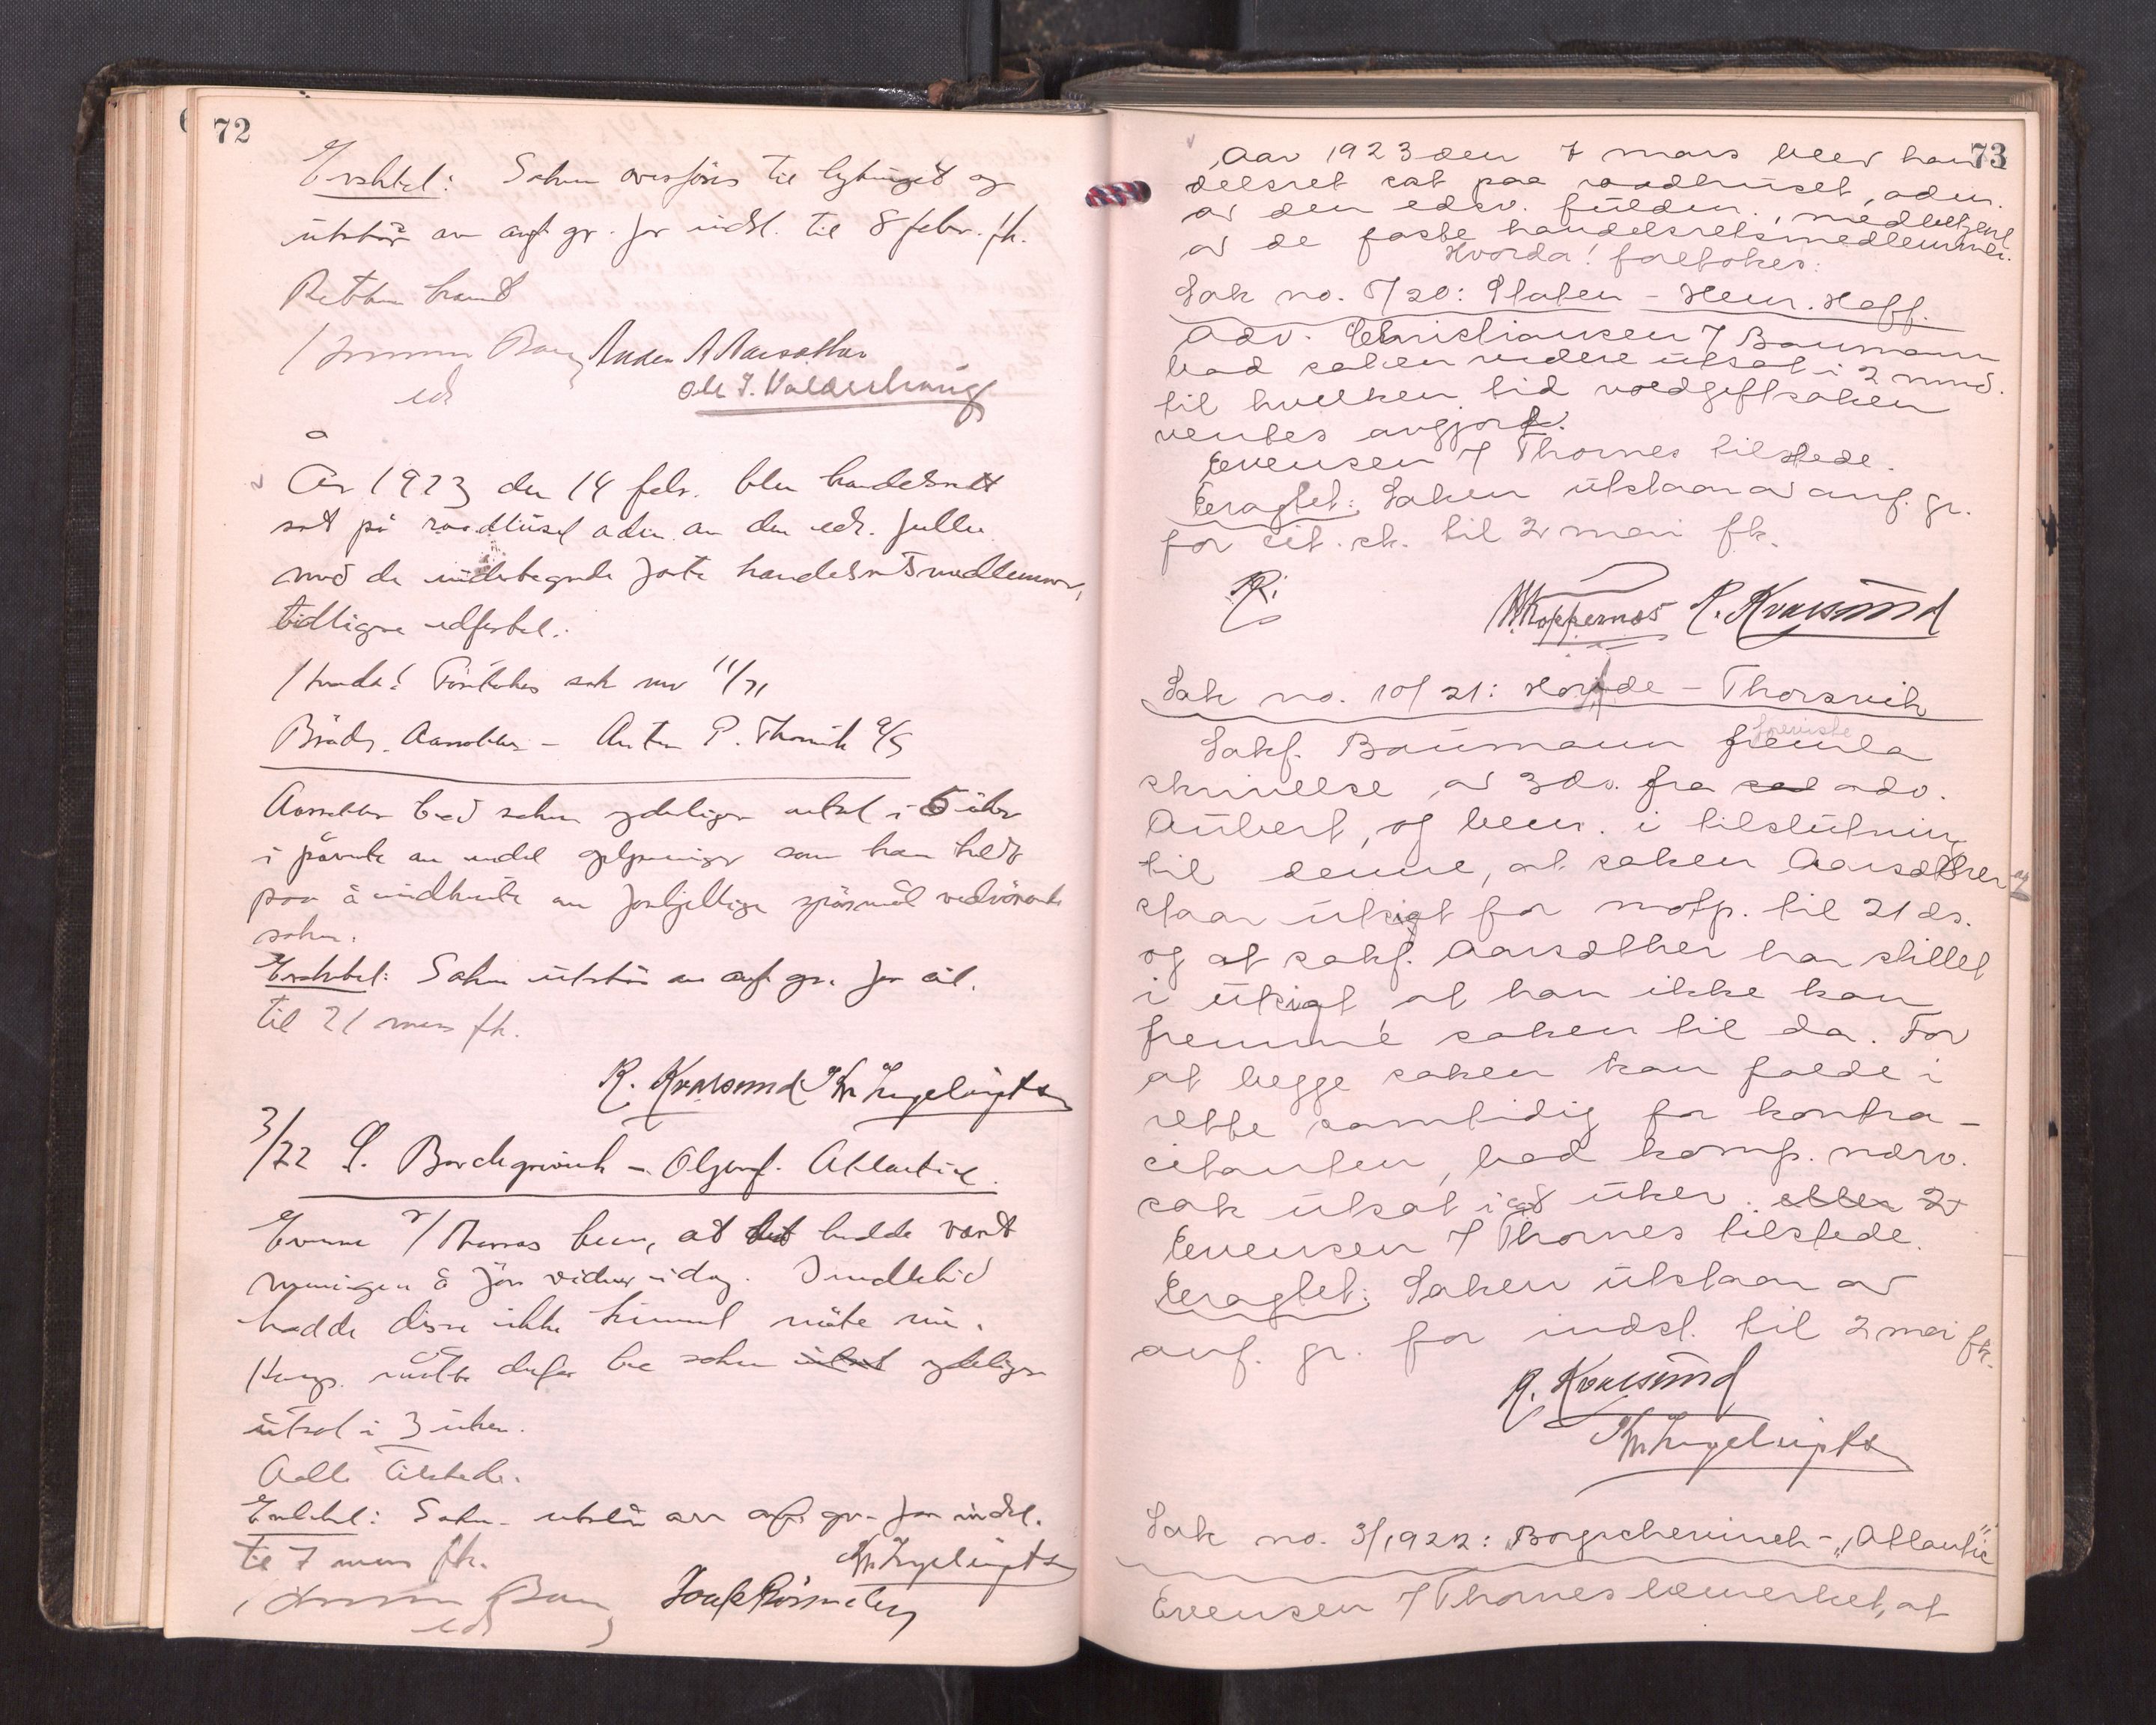 72
Eraktet: Saken overføres til bytinget og
utstår av anf. gr. for indst. til 8 febr. fk.
Retten hævet
Anders A Aarsæther
ed
Ole J. Valderhaug
År 1923 den 14 febr. blev handelsrett
sat på raadhuset adm. av den edsv. fullm.
med de undertegnede faste handelsretsmedlemmer,
tidligere edfestet.
Hvorda! Foretokes sak nr 11/21
Brødr. Aarsæther – Anton P. Thorsvik A/S
Aarsæther bad saken ydeligere utsat i 5 uker
i påvente av endel oplysninger som han holdt
paa å indhente om forskjellige spørsmål vedrørende
saken.
Eraktet: Saken utstår av anf. gr. for cit.
til 21 mars fk.
R. Kvarsund
3/22 S. Borchgrevink – Oljeraf. Atlantic.
Evensen f/ Thornes bem, at det hadde vært
meningen å føre vidner idag. Imidlertid
hadde disse ikke kunnet møte nu.
Komp. måtte derfor be saken utsat ydeligere
utsat i 3 uker.
Aalb. tilstede.
Eraktet: Saken utstår av anf. gr. for indst.
til 7 mars fk.
ed
73
Aar 1923 den 7 mars blev han
delsret sat paa raadhuset, adm.
av den edsv. fuldm., medbetjent
av de faste handelsretsmedlemmer.
Hvorda! foretokes:
Sak no. 5/20: Staten – Henr. Hoff.
Adv. Christiansen f Baumann
bad saken videre utsat i 2 mnd.
til hvilken tid voldgiftsaken
ventes avgjort.
Evensen f Thornes tilstede.
Eragtet: Saken utstaar av anf. gr.
for cit. sk. til 2 mai fk.
H Koppernæs R. Kvarsund
Sak no. 10/21: Hovde – Thorsvik
Sakf. Baumann fremla foreviste
skrivelse av 3 ds. fra sad adv.
Aubert, og bem. i tilslutning
til denne, at saken Aarsæther og
staar utsigt for motp. til 21 ds.
og at sakf. Aarsæther har stillet
i utsigt at han ikke kan
fremme saken til da. For
at begge saker kan folde i
rette samtidig for kontra-
citanten, bad komp. nærv.
sak utsat i 8 uker. eller 2
Evensen f Thornes tilstede.
Eragtet: Saken utstaar av
anf. gr. for indst. til 2 mai fk.
R. Kvarsund
Sak no. 3/1922: Borgschevinck – "Atlantic"
Evensen f Thornes bemerket, at